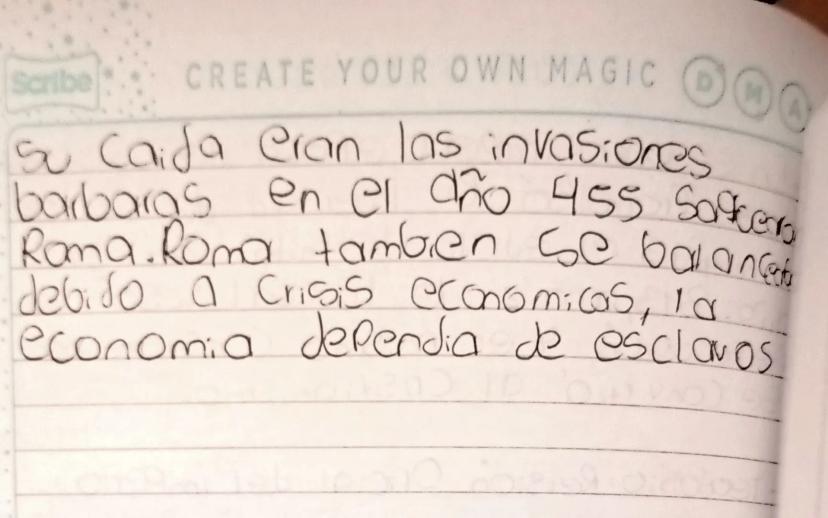 Scribe CREATE YOUR OWN MAGIC D M A
su caida eran las invasiones
barbaras en el año 455
Roma. Roma tambien se
debido a crisis economicas, la
economia dependia de esclavos